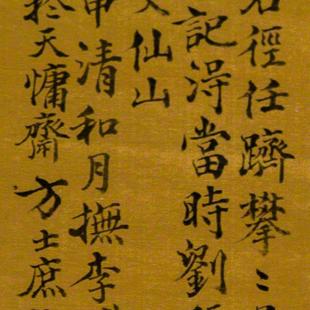 徑任躋攀〻
記得當時劉
仙山
申清和月撫李
於天慵齋方士庶